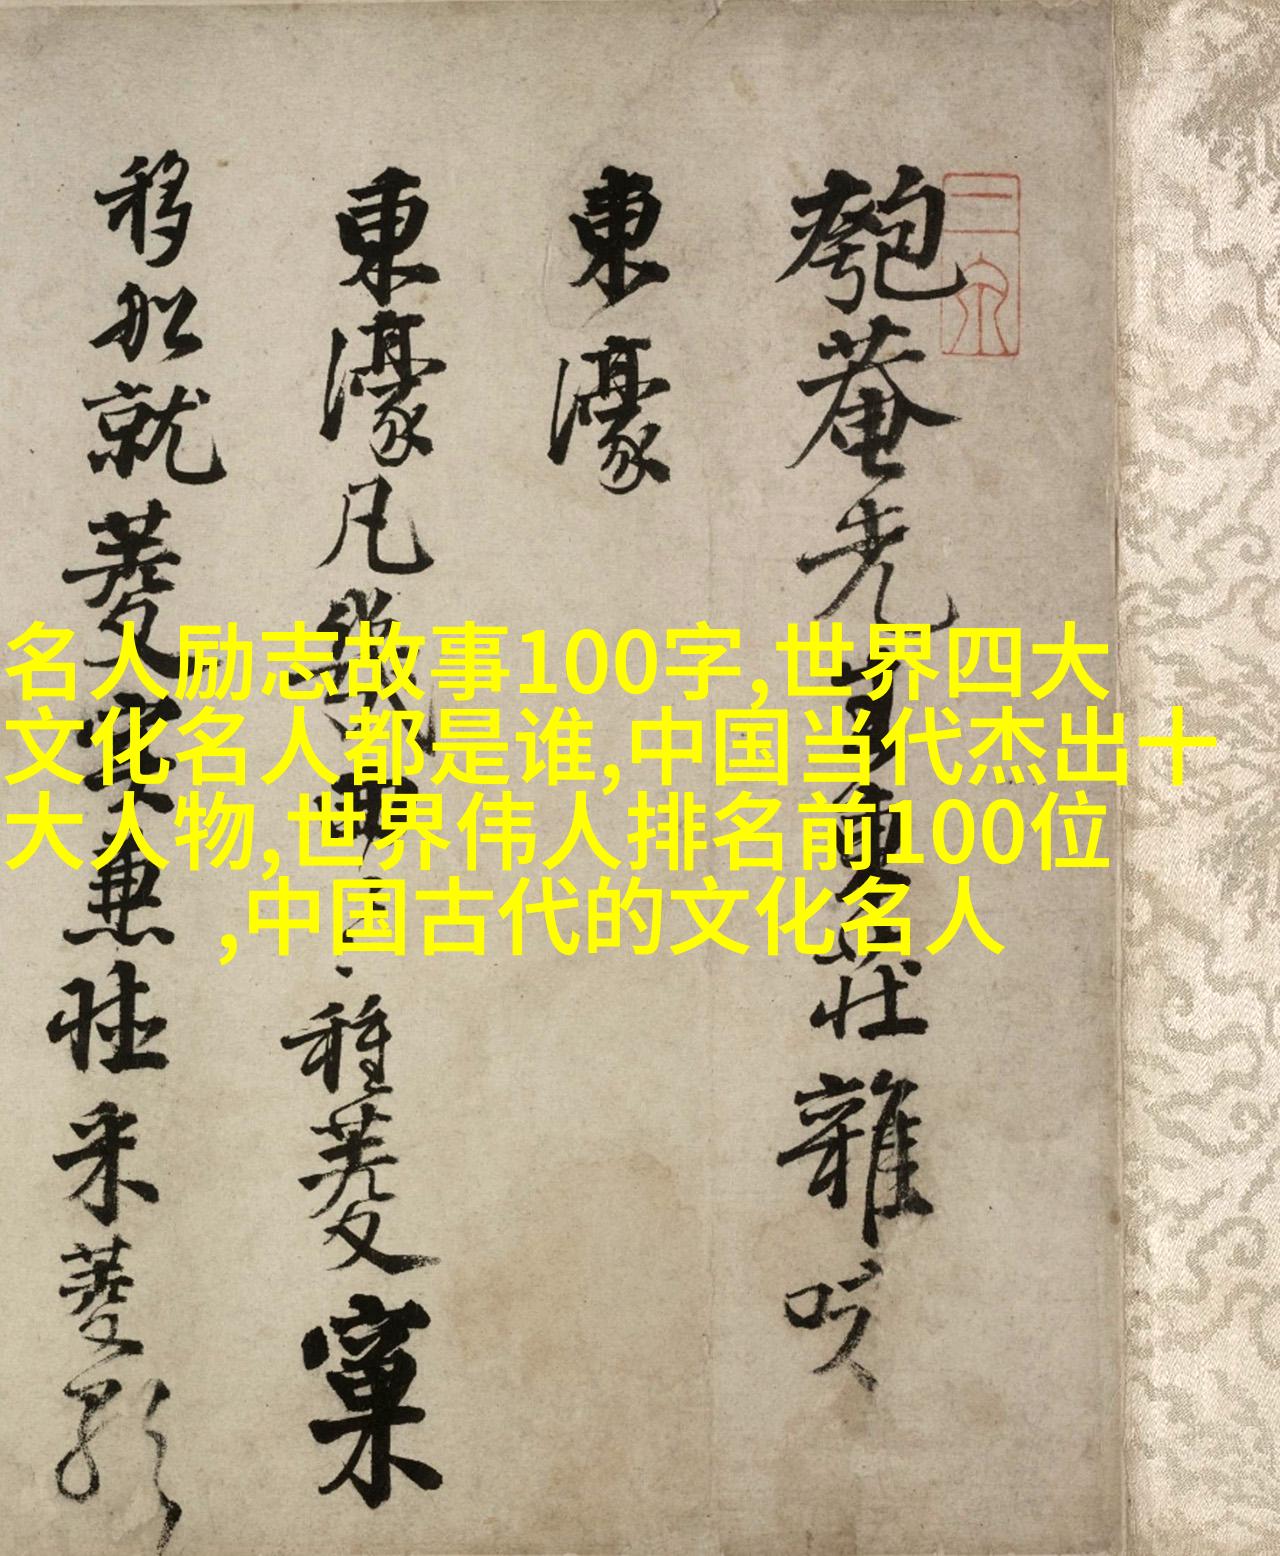 二泉
匏菴先生東莊雜咏
東濠
東濠凡幾種菱窠
移船就菱實兼采菱歌
名人励志故事100字,世界四大
文化名人都是谁,中国当代杰出十
大人物,世界伟人排名前100位
,中国古代的文化名人